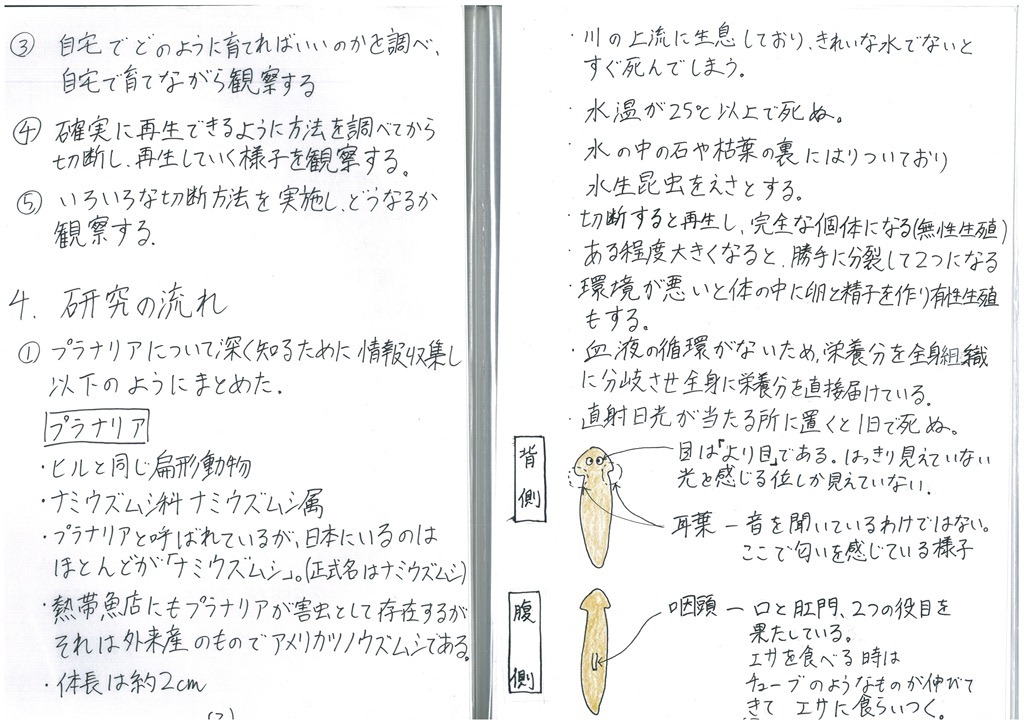 ③ 自宅でどのように育てればいいのかを調べ、
自宅で育てながら観察する
④ 確実に再生できるように方法を調べてから
切断し、再生していく様子を観察する。
⑤ いろいろな切断方法を実施し、どうなるか
観察する.
4. 研究の流れ
① プラナリアについて深く知るために情報収集し
以下のようにまとめた.
プラナリア
・ヒルと同じ扁形動物
・ナミウズムシ科 ナミウズムシ属
・プラナリアと呼ばれているが、日本にいるのは
ほとんどが「ナミウズムシ」。(正式名はナミウズムシ)
・熱帯魚店にもプラナリアが害虫として存在するが
それは外来産のものでアメリカツノウズムシである。
・体長は約2cm
・川の上流に生息しており、きれいな水でないと
すぐ死んでしまう。
・水温が25℃以上で死ぬ。
・水の中の石や枯葉の裏にはりついており
水生昆虫をえさとする。
・切断すると再生し、完全な個体になる(無性生殖)
・ある程度大きくなると、勝手に分裂して2つになる
・環境が悪いと体の中に卵と精子を作り有性生殖
もする。
・血液の循環がないため、栄養分を全身組織
に分岐させ全身に栄養分を直接届けている.
・直射日光が当たる所に置くと1日で死ぬ。
背側
目は「より目」である. はっきり見えていない
光を感じる位しか見えていない.
耳葉 ー 音を聞いているわけではない。
ここで匂いを感じている様子
腹側
咽頭 ー 口と肛門、2つの役目を
果たしている。
エサを食べる時は
チューブのようなものが伸びて
きて エサに食らいつく。